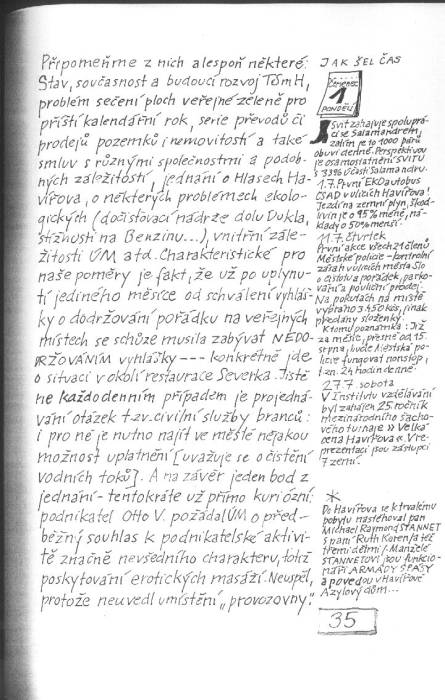 Připomeňme z nich alespoň některé:
Stav, současnost a budoucí rozvoj TSmH,
problém sečení ploch veřejné zeleně pro
příští kalendářní rok, serie převodů či
prodejů pozemků i nemovitostí a také
smluv s různými společnostmi a podob-
ných záležitostí, jednání o Hlasech Ha-
vířova, o některých problémech ekolo-
gických (dočišťovací nádrže dolu Dukla,
stížnosti na Benzinu...), vnitřní zále-
žitosti ÚM atd. Charakteristické pro
naše poměry je fakt, že už po uplynu-
tí jediného měsíce od schválení vyhláš-
ky o dodržování pořádku na veřejných
místech se schůze musila zabývat NEDO-
DRŽOVÁNÍM vyhlášky --- konkrétně jde
o situaci v okolí restaurace Severka. Jistě
ne každodenním případem je projedná-
vání otázek tzv. civilní služby branců:
i pro ně je nutno najít ve městě nějakou
možnost uplatnění [uvažuje se o čištění
vodních toků]. A na závěr jeden bod z
jednání - tentokráte už přímo kuriózní:
podnikatel Otto V. požádal ÚM o před-
běžný souhlas k podnikatelské aktivi-
tě značně nevšedního charakteru, totiž
poskytování erotických masáží. Neuspěl,
protože neuvedl umístění „provozovny."
JAK ŠEL ČAS
Červenec
1
PONDĚLÍ
Svit zahajuje spoluprá-
ci se Salamandrem,
zatím je to 1000 párů
obuvi denně. Perspektivou
je osamostatnění SVITU
s 33% účastí Salamandru.
1.7. První EKOautobus
ČSAD v ulicích Havířova!
Jezdí na zemní plyn, škod-
livin je o 95% méně, ná-
klady o 50% menší.
11.7. čtvrtek
První akce všech 21 členů
Městské policie - kontrolní
zátah v ulicích města. Šlo
o čistotu a pořádek, parko-
vání a pouliční prodej.
Na pokutách na místě
vybráno 3450 Kčs, jinak
předány složenky.
K tomu poznámka: Již
za měsíc, přesně od 15.
srpna, bude Městská po-
licie fungovat nonstop,
tzn. 24 hodin denně.
27.7. sobota
V Institutu vzdělávání
byl zahájen 25. ročník
mezinárodního šacho-
vého turnaje » Velká
cena Havířova «. Vre-
prezentaci jsou zástupci
7 zemí.
*
Do Havířova se k trvalému
pobytu nastěhoval pan
Michael Raymond STANNET
s paní Ruth a též
třemi dětmi. Manželé
STANNETOVI jsou funkcio-
náři ARMÁDY SPÁSY
a povedou v Havířově
Azylový dům...
35